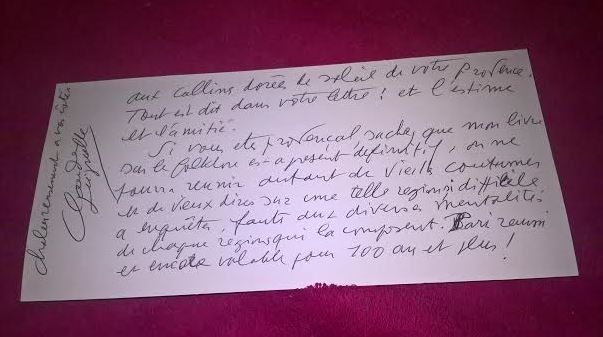 aux collines dorées de soleil de votre Provence.
Tout est dit dans votre lettre ! et l'estime
et l'amitié.
Si vous etes provençal, sachez que mon livre
sur le folklore est a présent definitif, on ne
pourra reunir autant de vieilles coutumes
et de vieux dires sur une telle region si difficile
a enquêter, faute aux diverses mentalités
de chaque régions qui la composent. Pari reussi
et encore valable pour 100 ans et plus !
chaleureusement a vos
Claude Seignolle